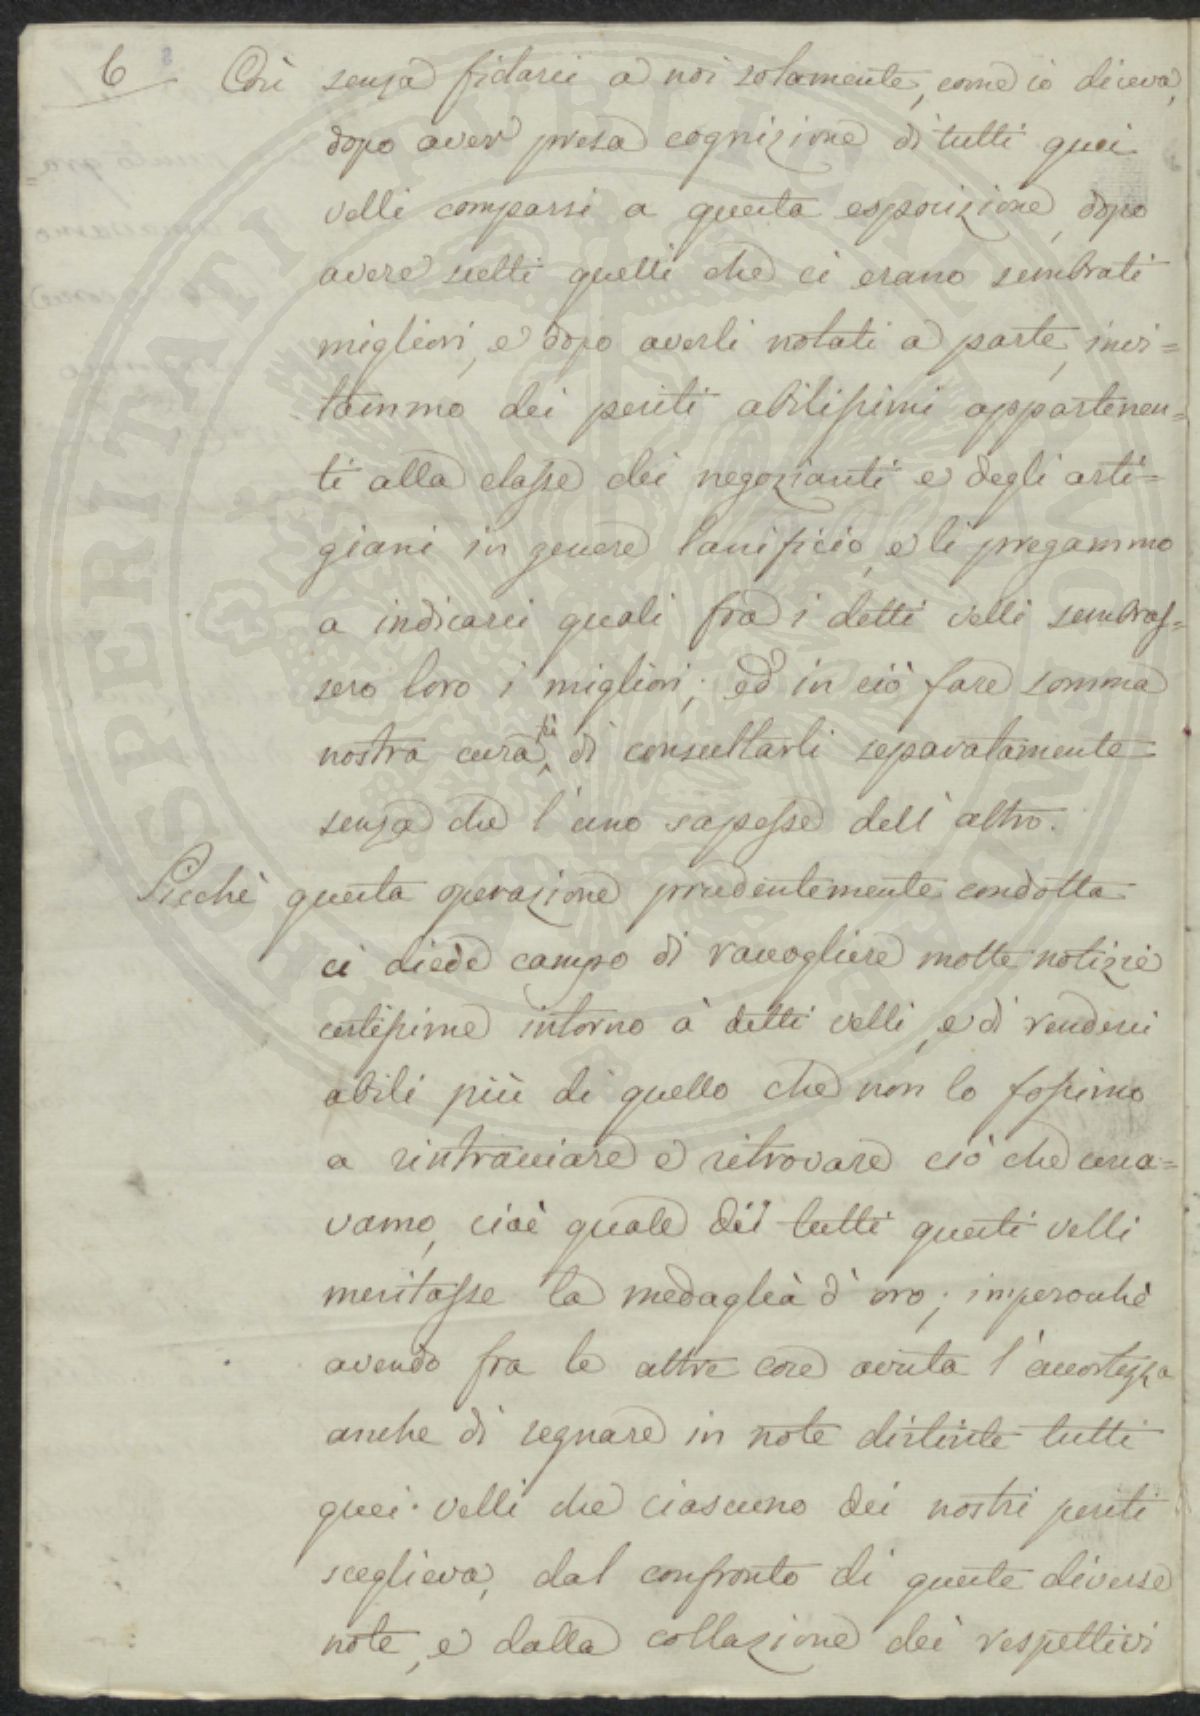 6
Così senza fidarci a noi solamente, come io diceva,
dopo aver presa cognizione di tutti quei
velli comparsi a questa esposizione, dopo
avere scelti quelli che ci erano sembrati
migliori, e dopo averli notati a parte, invi=
tammo dei periti abilissimi appartenen=
ti alla classe dei negozianti e degli arti=
giani in genere lanificio, e li pregammo
a indicarci quali fra i detti velli sembras=
sero loro i migliori; ed in ciò fare somma
nostra cura fu di consultarli separatamente
senza che l'uno sapesse dell'altro.
Sicchè questa operazione prudentemente condotta
ci diede campo di raccogliere molte notizie
certissime intorno a detti velli, e di renderci
abili più di quello che non lo fossimo
a rintracciare e ritrovare ciò che cerca=
vamo, cioè quale di tutti questi velli
meritasse la medaglia d'oro; imperocchè
avendo fra le altre cose avuta l'accortezza
anche di segnare in note distinte tutti
quei velli che ciascuno dei nostri periti
sceglieva, dal confronto di queste diverse
note, e dalla collazione dei respettivi
PROSPERITATI PUBLICAE